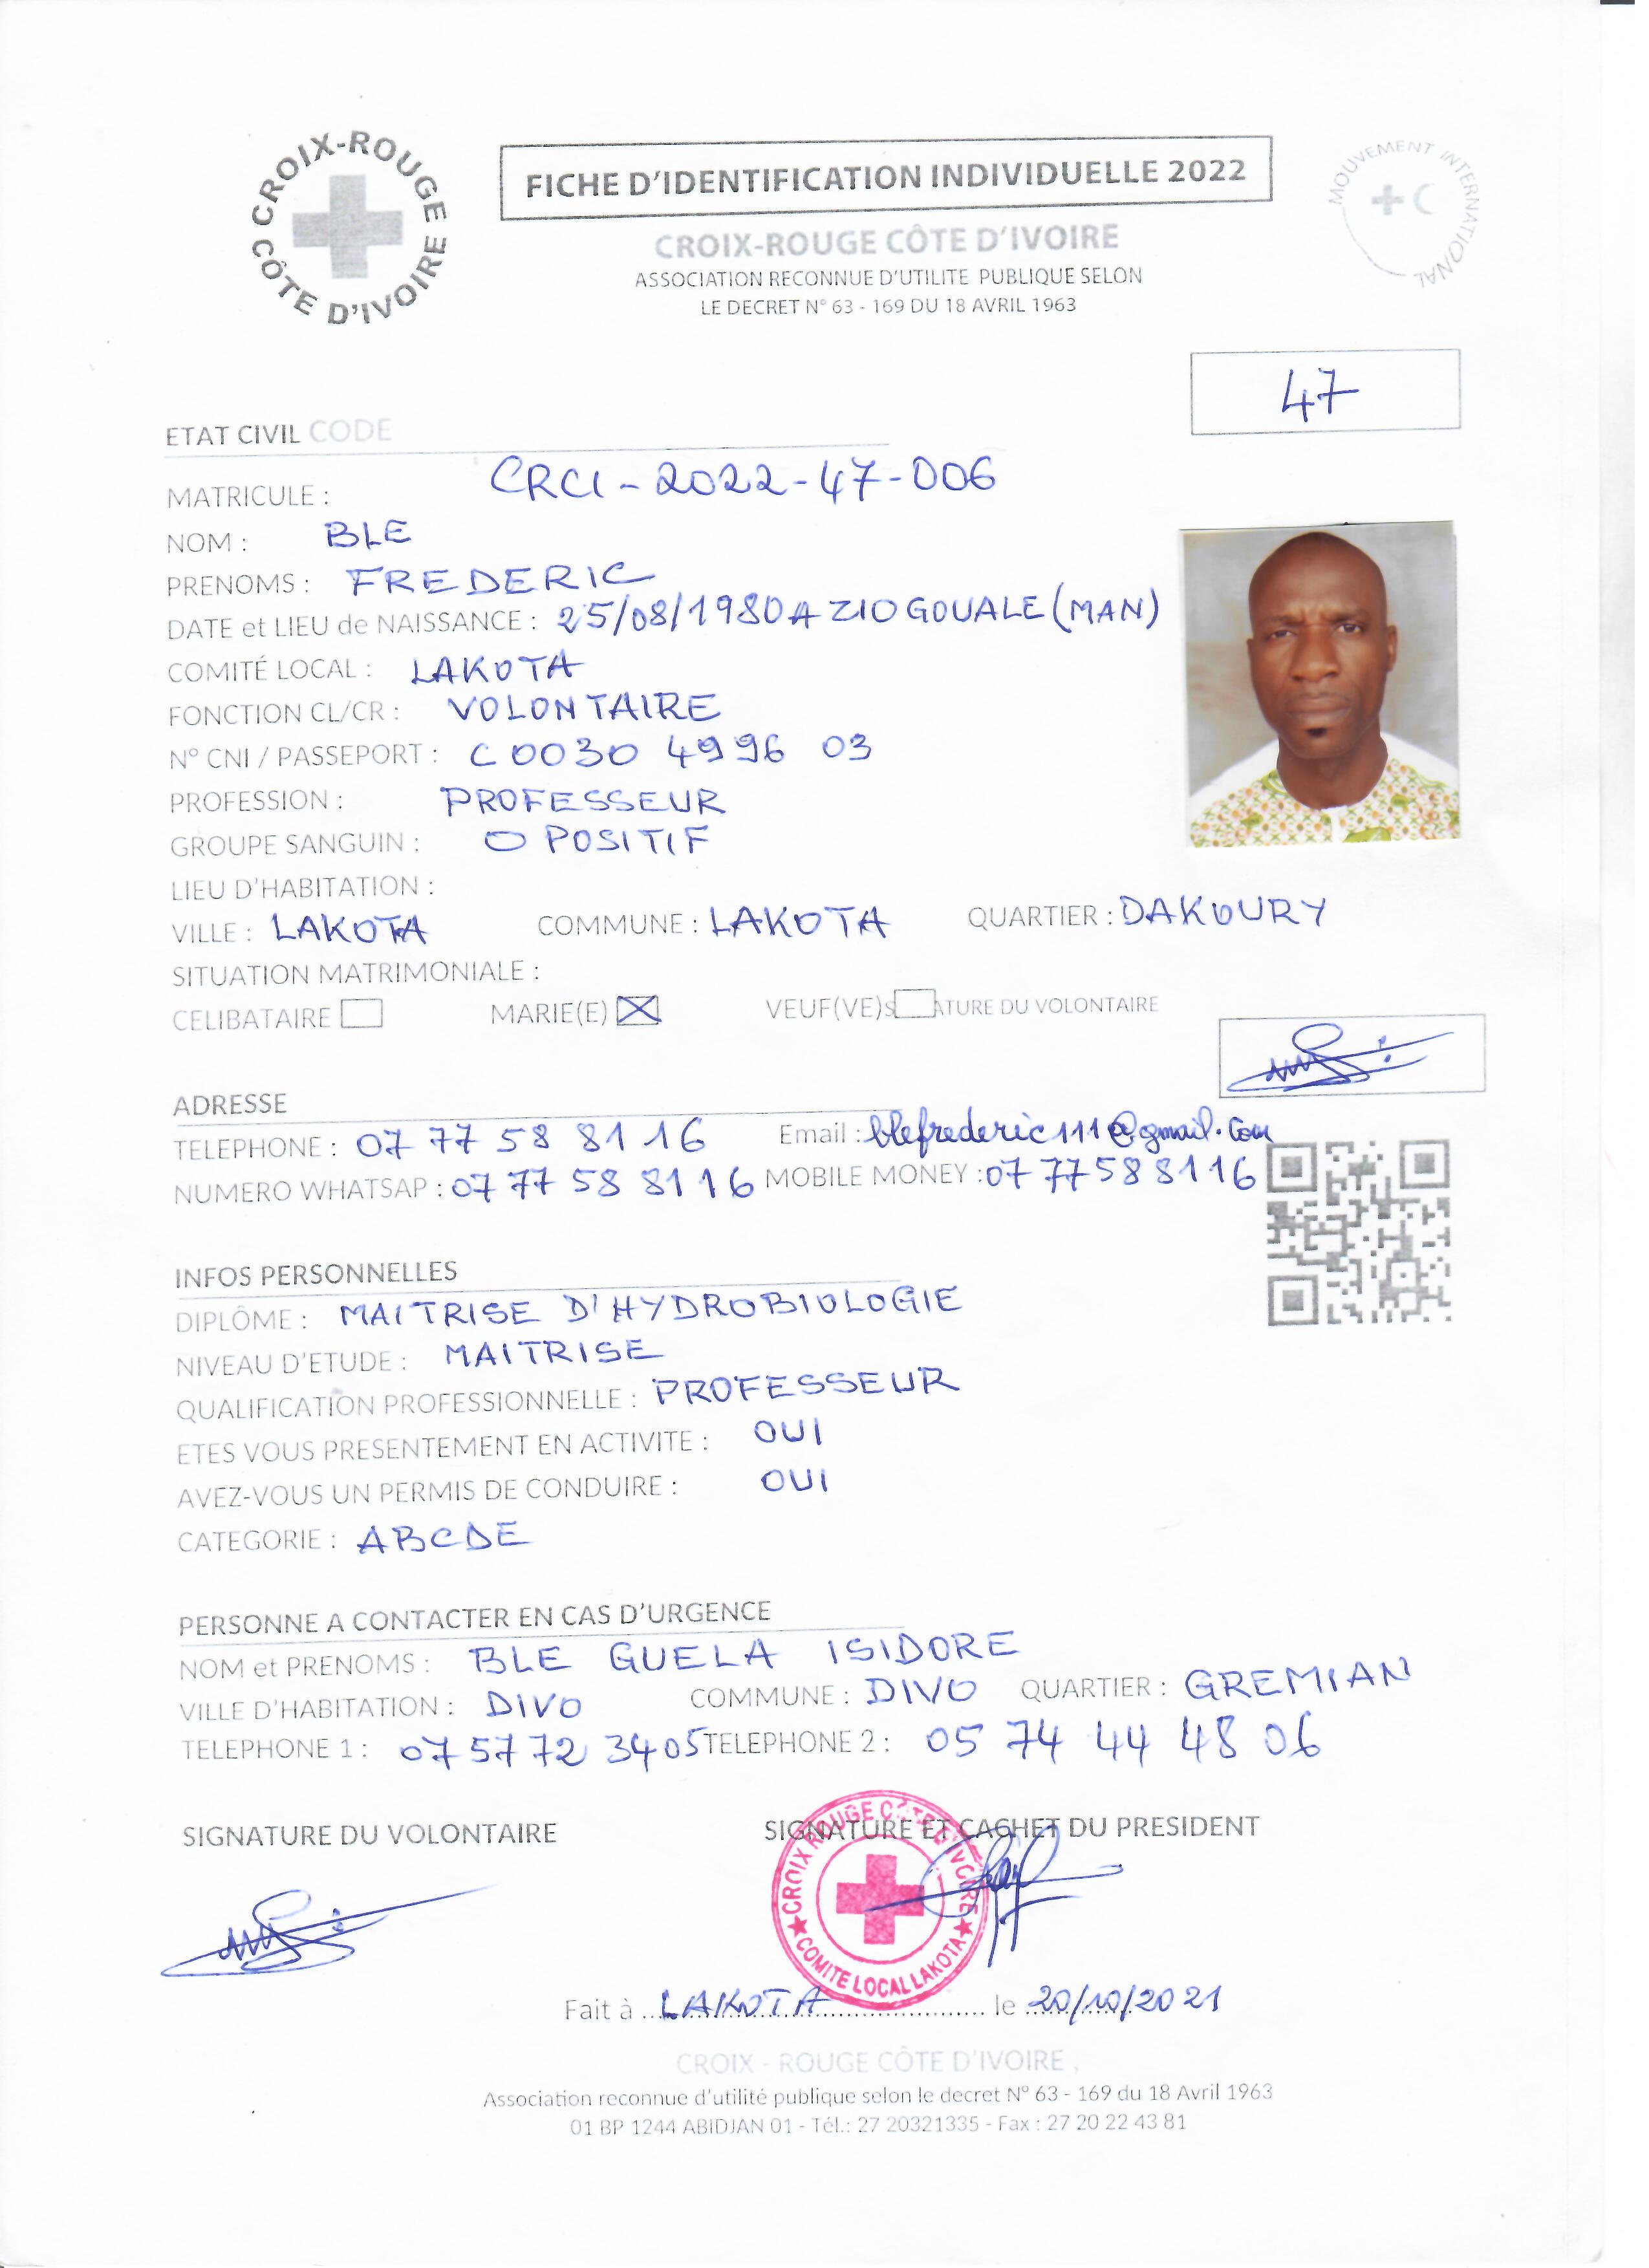 CROIX-ROUGE CÔTE D'IVOIRE
FICHE D'IDENTIFICATION INDIVIDUELLE 2022
MOUVEMENT INTERNATIONAL
CROIX-ROUGE CÔTE D'IVOIRE
ASSOCIATION RECONNUE D'UTILITE PUBLIQUE SELON
LE DECRET N° 63 - 169 DU 18 AVRIL 1963
47
ETAT CIVIL CODE
MATRICULE : CRCI-2022-47-006
NOM : BLE
PRENOMS : FREDERIC
DATE et LIEU de NAISSANCE : 25/08/1980 A ZIOGOUALE (MAN)
COMITÉ LOCAL : LAKOTA
FONCTION CL/CR : VOLONTAIRE
N° CNI / PASSEPORT : C 0030 4996 03
PROFESSION : PROFESSEUR
GROUPE SANGUIN : O POSITIF
LIEU D'HABITATION :
VILLE : LAKOTA COMMUNE : LAKOTA QUARTIER : DAKOURY
SITUATION MATRIMONIALE :
CELIBATAIRE MARIE(E) VEUF(VE) S ATURE DU VOLONTAIRE
ADRESSE
TELEPHONE : 07 77 58 81 16 Email : blefrederic111@gmail.com
NUMERO WHATSAP : 07 77 58 81 16 MOBILE MONEY : 07 77 58 81 16
INFOS PERSONNELLES
DIPLÔME : MAITRISE D'HYDROBIOLOGIE
NIVEAU D'ETUDE : MAITRISE
QUALIFICATION PROFESSIONNELLE : PROFESSEUR
ETES VOUS PRESENTEMENT EN ACTIVITE : OUI
AVEZ-VOUS UN PERMIS DE CONDUIRE : OUI
CATEGORIE : ABCDE
PERSONNE A CONTACTER EN CAS D'URGENCE
NOM et PRENOMS : BLE GUELA ISIDORE
VILLE D'HABITATION : DIVO COMMUNE : DIVO QUARTIER : GREMIAN
TELEPHONE 1 : 07 57 72 34 05 TELEPHONE 2 : 05 74 44 48 06
SIGNATURE DU VOLONTAIRE SIGNATURE ET CACHET DU PRESIDENT
CROIX ROUGE CÔTE D'IVOIRE
COMITE LOCAL LAKOTA
Fait à LAKOTA le 20/10/2021
CROIX - ROUGE CÔTE D'IVOIRE ,
Association reconnue d'utilité publique selon le decret N° 63 - 169 du 18 Avril 1963
01 BP 1244 ABIDJAN 01 - Tél.: 27 20321335 - Fax : 27 20 22 43 81